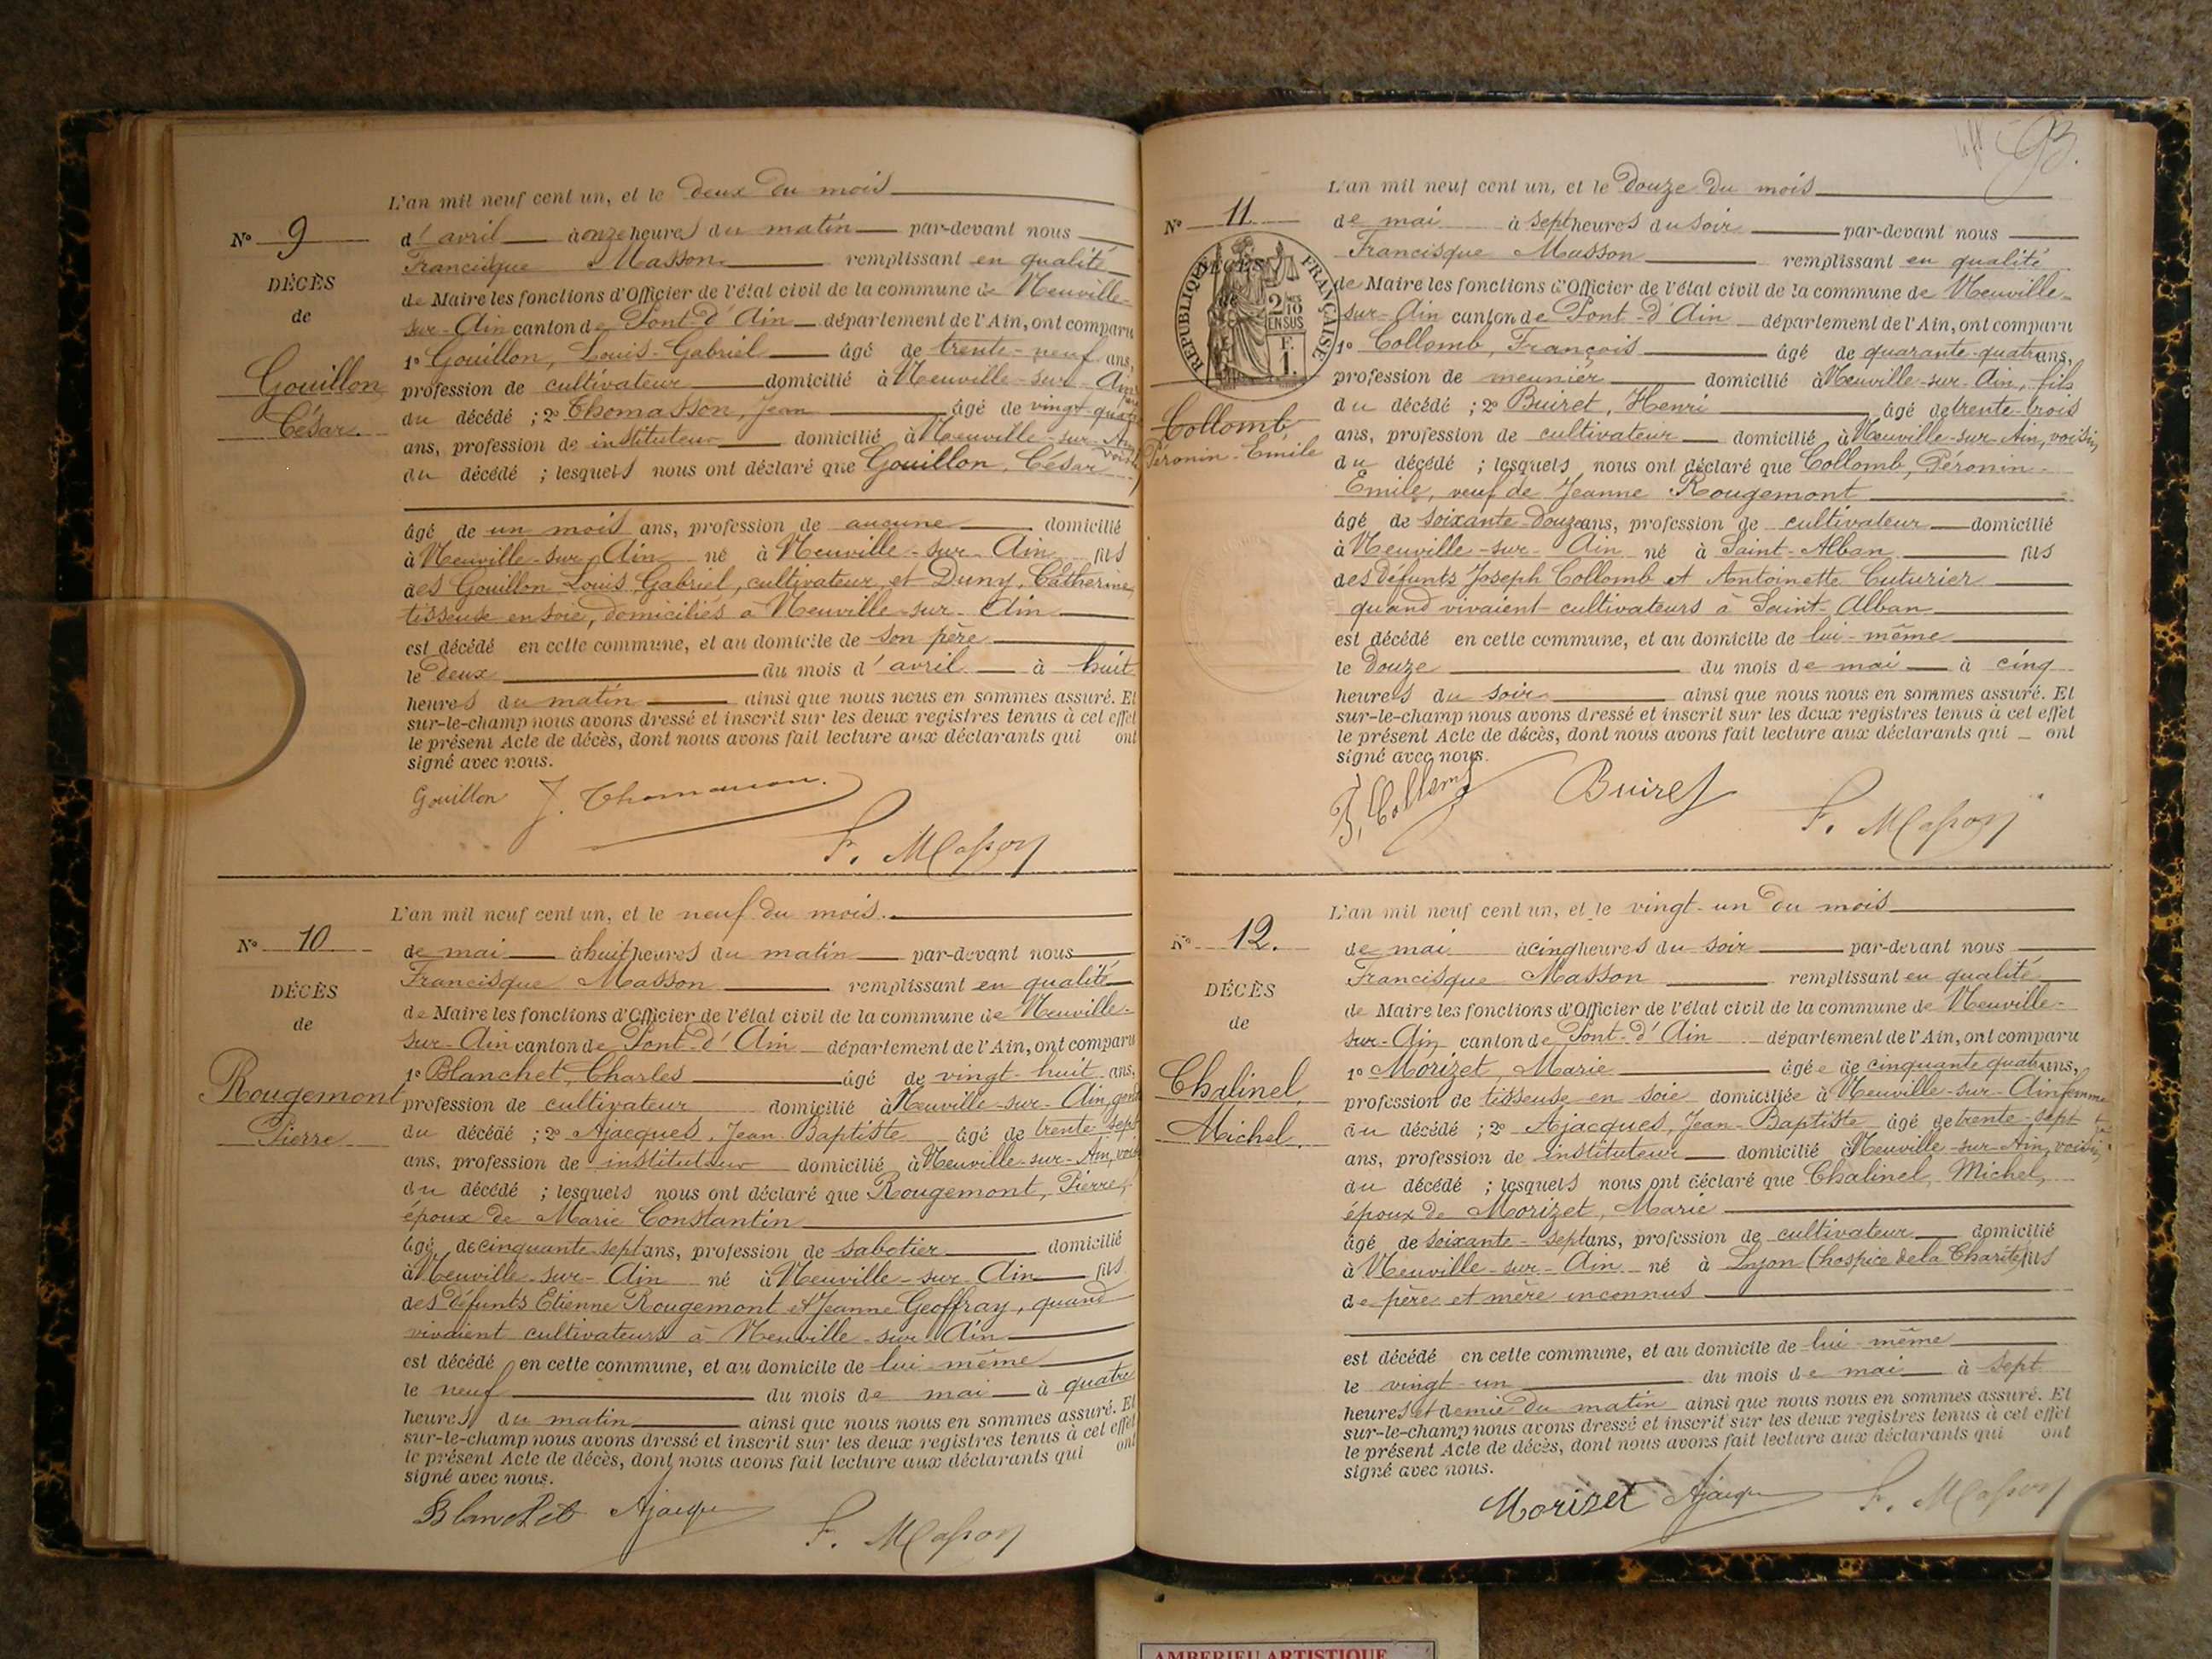 L'an mil neuf cent un, et le deux du mois
N° 9
d'avril à onze heures du matin par-devant nous
Francisque Masson remplissant en qualité
DÉCÈS
de Maire les fonctions d'Officier de l'état civil de la commune de Neuville-
de
sur-Ain canton de Pont-d'Ain département de l'Ain, ont comparu
1° Gouillon, Louis-Gabriel âgé de trente-neuf ans,
Gouillon
profession de cultivateur domicilié à Neuville-sur-Ain
César
du décédé ; 2° Thomasson, Jean âgé de vingt-quatre
ans, profession de instituteur domicilié à Neuville-sur-Ain
du décédé ; lesquels nous ont déclaré que Gouillon, César
âgé de un mois ans, profession de aucune domicilié
à Neuville-sur-Ain né à Neuville-sur-Ain fils
des Gouillon Louis Gabriel, cultivateur et Duny, Catherine
tisseuse en soie, domiciliés à Neuville-sur-Ain
est décédé en cette commune, et au domicile de son père
le deux du mois d'avril à huit
heures du matin ainsi que nous nous en sommes assuré. Et
sur-le-champ nous avons dressé et inscrit sur les deux registres tenus à cet effet
le présent Acte de décès, dont nous avons fait lecture aux déclarants qui ont
signé avec nous.
Gouillon J. Thomasson
F. Masson
L'an mil neuf cent un, et le neuf du mois
N° 10
de mai à huit heures du matin par-devant nous
Francisque Masson remplissant en qualité
DÉCÈS
de Maire les fonctions d'Officier de l'état civil de la commune de Neuville-
de
sur-Ain canton de Pont-d'Ain département de l'Ain, ont comparu
1° Blanchet, Charles âgé de vingt-huit ans,
Rougemont
profession de cultivateur domicilié à Neuville-sur-Ain, gendre
Pierre
du décédé ; 2° Ajacques, Jean Baptiste âgé de trente-sept
ans, profession de instituteur domicilié à Neuville-sur-Ain, voisin
du décédé ; lesquels nous ont déclaré que Rougemont, Pierre,
époux de Marie Constantin
âgé de cinquante-sept ans, profession de sabotier domicilié
à Neuville-sur-Ain né à Neuville-sur-Ain fils
des défunts Etienne Rougemont et Jeanne Geoffray, quand
vivaient cultivateurs à Neuville-sur-Ain
est décédé en cette commune, et au domicile de lui-même
le neuf du mois de mai à quatre
heures du matin ainsi que nous nous en sommes assuré. Et
sur-le-champ nous avons dressé et inscrit sur les deux registres tenus à cet effet
le présent Acte de décès, dont nous avons fait lecture aux déclarants qui ont
signé avec nous.
Blanchet Ajacques F. Masson
93.
L'an mil neuf cent un, et le douze du mois
N° 11
de mai à sept heures du soir par-devant nous
Francisque Masson remplissant en qualité
DÉCÈS
RÉPUBLIQUE FRANÇAISE
2/10 EN SUS
F. 1.
de Maire les fonctions d'Officier de l'état civil de la commune de Neuville-
de
sur-Ain canton de Pont-d'Ain département de l'Ain, ont comparu
1° Collomb, François âgé de quarante-quatre ans,
profession de meunier domicilié à Neuville-sur-Ain, fils
Collomb
du décédé ; 2° Buiret, Henri âgé de trente-trois
Péronin-Emile
ans, profession de cultivateur domicilié à Neuville-sur-Ain, voisin
du décédé ; lesquels nous ont déclaré que Collomb, Péronin-
Emile, veuf de Jeanne Rougemont
âgé de soixante-douze ans, profession de cultivateur domicilié
à Neuville-sur-Ain né à Saint-Alban fils
des défunts Joseph Collomb et Antoinette Cuturier
quand vivaient cultivateurs à Saint-Alban
est décédé en cette commune, et au domicile de lui-même
le douze du mois de mai à cinq
heures du soir ainsi que nous nous en sommes assuré. Et
sur-le-champ nous avons dressé et inscrit sur les deux registres tenus à cet effet
le présent Acte de décès, dont nous avons fait lecture aux déclarants qui ont
signé avec nous.
F. Collomb Buiret F. Masson
L'an mil neuf cent un, et le vingt-un du mois
N° 12.
de mai à cinq heures du soir par-devant nous
Francisque Masson remplissant en qualité
DÉCÈS
de Maire les fonctions d'Officier de l'état civil de la commune de Neuville-
de
sur-Ain canton de Pont-d'Ain département de l'Ain, ont comparu
1° Morizet, Marie âgée de cinquante quatre ans,
Chalinel
profession de tisseuse en soie domiciliée à Neuville-sur-Ain femme
Michel
du décédé ; 2° Ajacques, Jean-Baptiste âgé de trente-sept
ans, profession de instituteur domicilié à Neuville-sur-Ain, voisin
du décédé ; lesquels nous ont déclaré que Chalinel, Michel,
époux de Morizet, Marie
âgé de soixante-sept ans, profession de cultivateur domicilié
à Neuville-sur-Ain né à Lyon (hospice de la Charité) fils
de père et mère inconnus
est décédé en cette commune, et au domicile de lui-même
le vingt-un du mois de mai à sept
heures et demie du matin ainsi que nous nous en sommes assuré. Et
sur-le-champ nous avons dressé et inscrit sur les deux registres tenus à cet effet
le présent Acte de décès, dont nous avons fait lecture aux déclarants qui ont
signé avec nous.
Morizet Ajacques F. Masson
AMBERIEU ARTISTIQUE